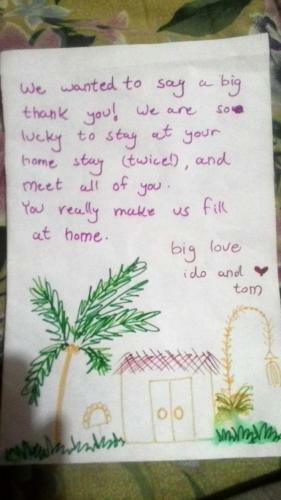 We wanted to say a big
thank you! We are so
lucky to stay at your
home stay (twice!), and
meet all of you.
You really make us fill
at home.
big love
ido and ♥
tom